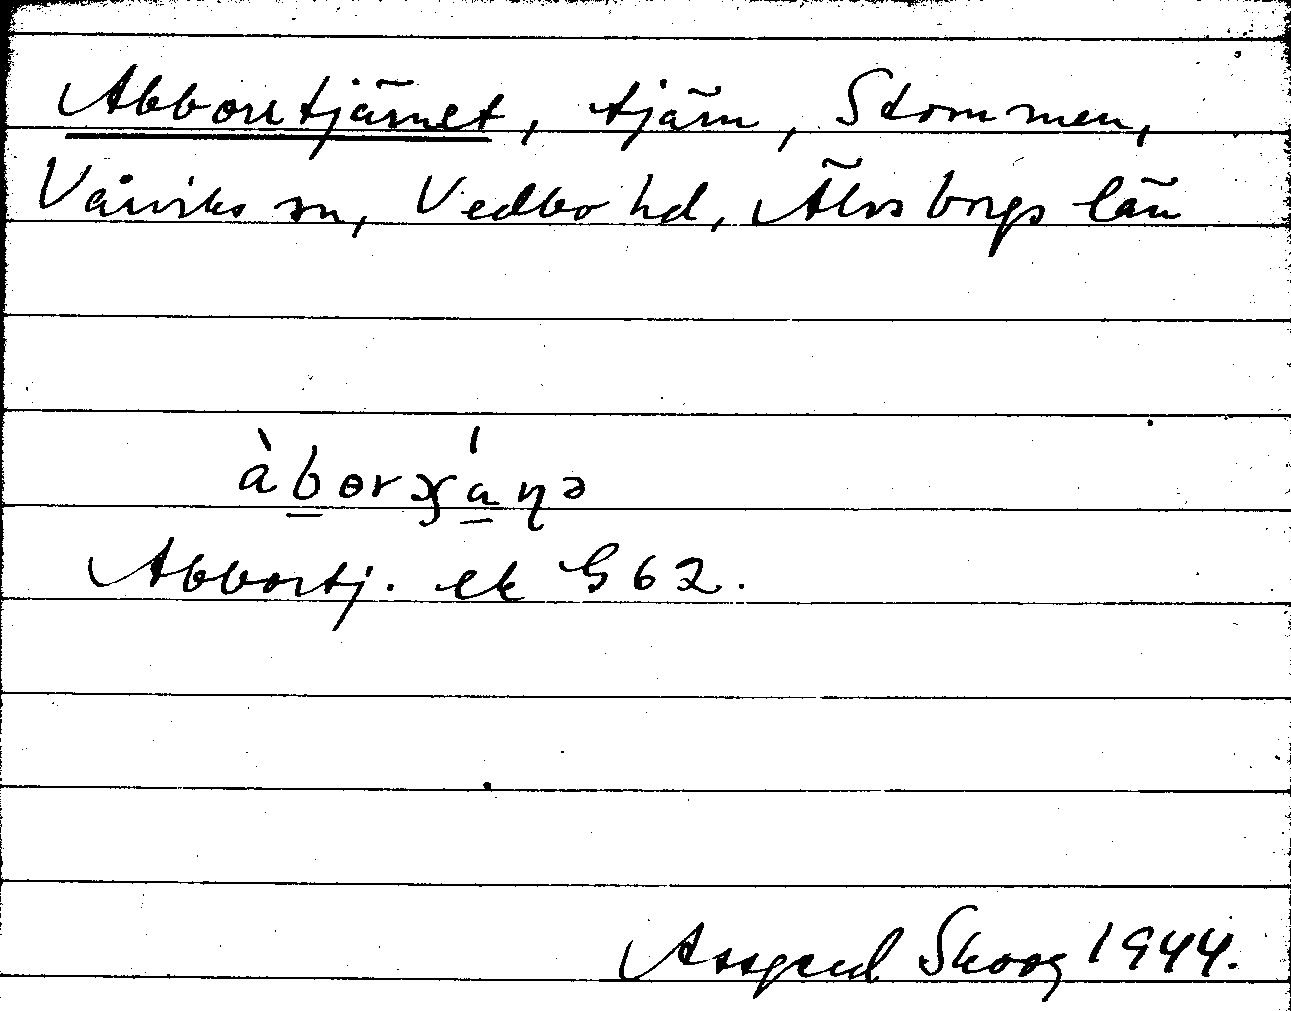 Abborrtjärnet, tjärn, Stommen,
Vårviks sn, Vedbo hd, Älvsborgs län
àbɵrɣáɳə
Abbortj. ek G 62.
Assgerd Skoog 1944.